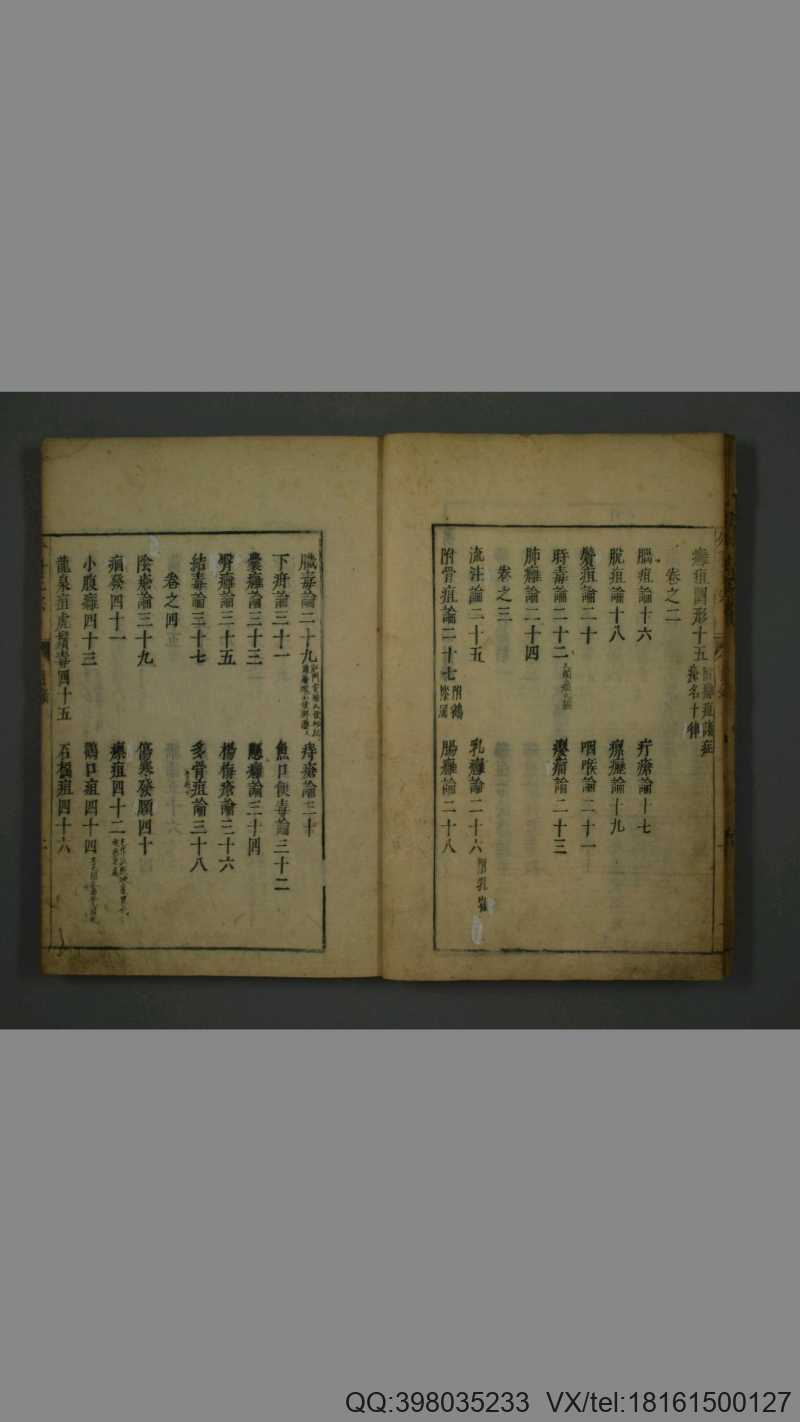 癰疽圖形十五
卷之二
腦疽論十六 疔瘡論十七
脫疽論十八 瘰癧論十九
鬢疽論二十 咽喉論二十一
時毒論二十二 癭瘤論二十三
肺癰論二十四
卷之三
流注論二十五 乳癰論二十六 附乳岩
附骨疽論二十七 附鶴膝風 腸癰論二十八
臟毒論二十九 痔瘡論三十
下疳論三十一 魚口便毒論三十二
囊癰論三十三 懸癰論三十四
臀癰論三十五 楊梅瘡論三十六
結毒論三十七 多骨疽論三十八
卷之四
陰瘡論三十九 傷寒發頤四十
痼發四十一 瘭疽四十二
小腹癰四十三 鸛口疽四十四
龍泉疽虎鬚毒四十五 石榴疽四十六
QQ:398035233 VX/tel:18161500127